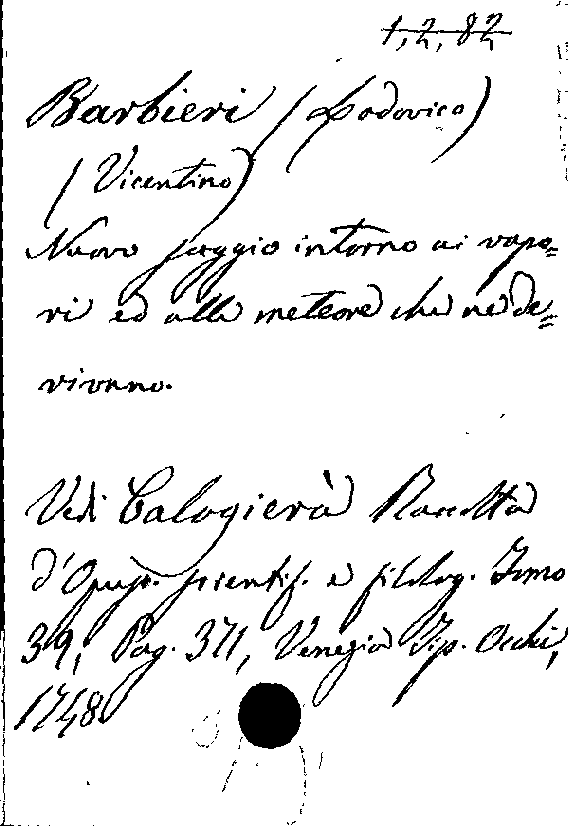 1,2,82
Barbieri (Lodovico)
(Vicentino)
Nuovo saggio intorno ai vapo=
ri ed alle meteore che ne de=
rivano.
Vedi Calogierà Raccolta
d'Opusc. scientif. e filolog. Tomo
39, Pag. 371, Venezia Tip. Occhi,
1748